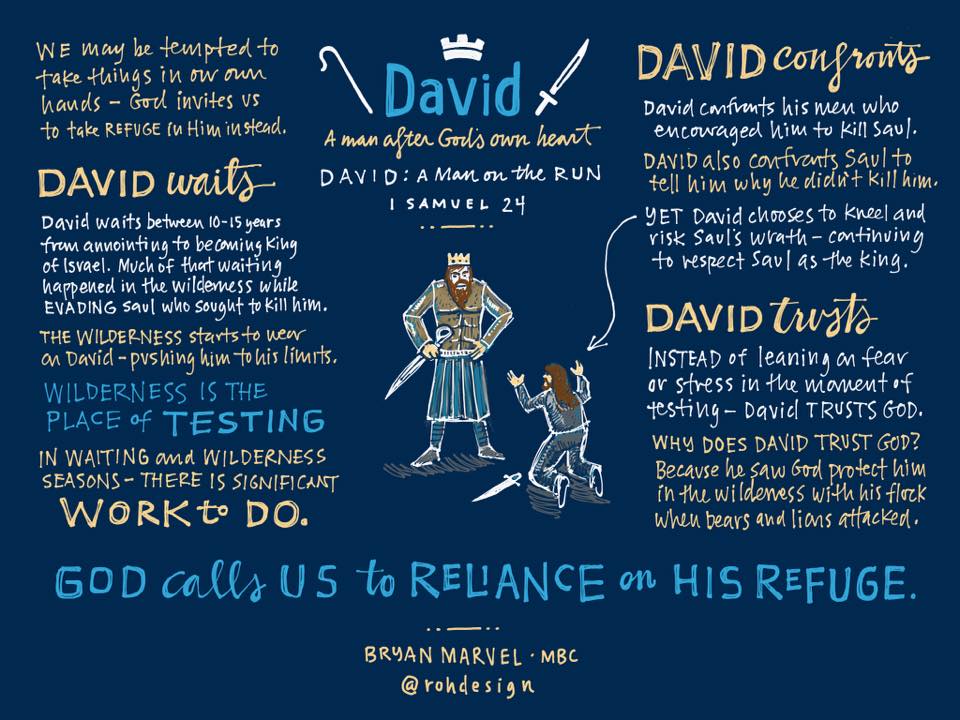 WE may be tempted to
take things in our own
hands – God invites us
to take REFUGE in Him instead.
DAVID waits
David waits between 10-15 years
from annointing to becoming King
of Israel. Much of that waiting
happened in the wilderness while
EVADING Saul who sought to kill him.
THE WILDERNESS starts to wear
on David – pushing him to his limits.
WILDERNESS IS THE
PLACE of TESTING
IN WAITING and WILDERNESS
SEASONS – THERE IS SIGNIFICANT
WORK to DO.
David
A man after God's own heart
DAVID: A Man on the RUN
1 SAMUEL 24
DAVID confronts
David confronts his men who
encouraged him to kill Saul.
DAVID also confronts Saul to
tell him why he didn't kill him.
YET David chooses to kneel and
risk Saul's wrath – continuing
to respect Saul as the king.
DAVID trusts
INSTEAD of leaning on fear
or stress in the moment of
testing – David TRUSTS GOD.
WHY DOES DAVID TRUST GOD?
Because he saw God protect him
in the wilderness with his flock
when bears and lions attacked.
GOD calls US to RELIANCE on HIS REFUGE.
BRYAN MARVEL · MBC
@rohdesign